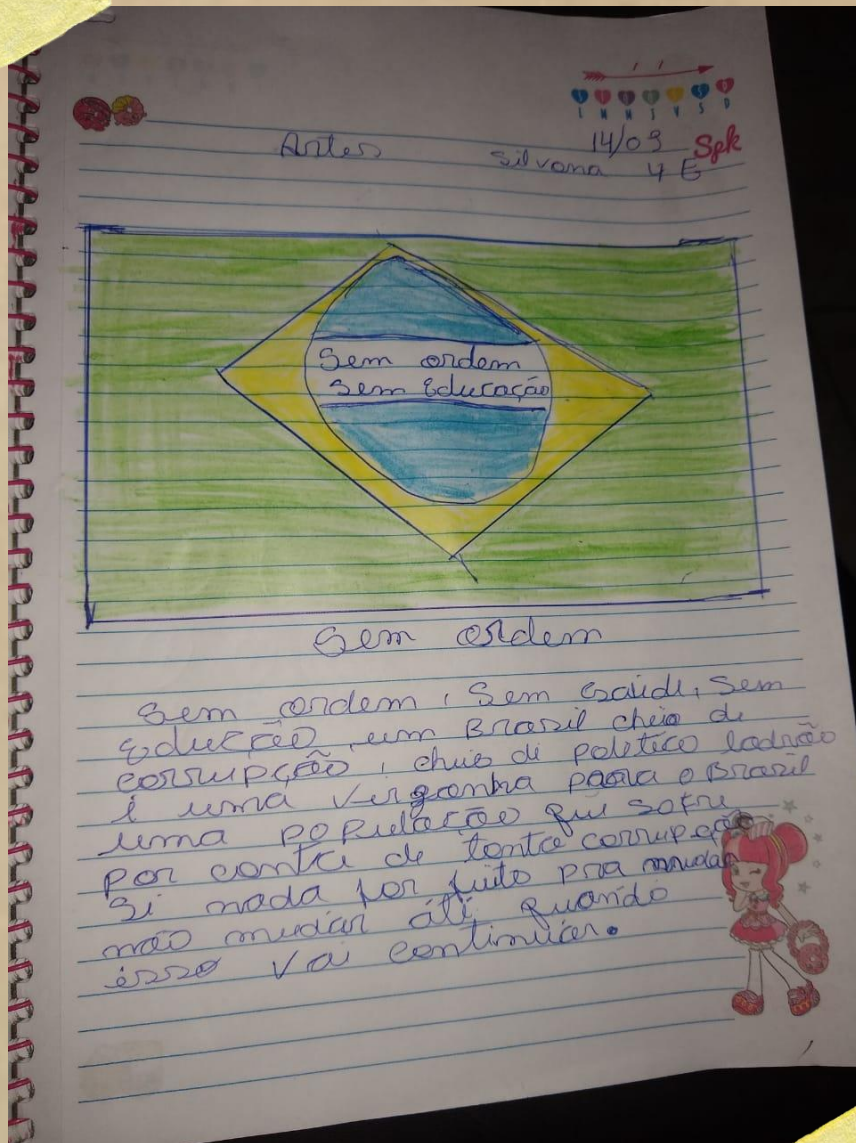 Artes
14/09 Spk
Silvana 4 E
L M M J V S D
Sem ordem
Sem Educação
Sem ordem
Sem ordem, Sem Saúde, Sem
Edução, um Brasil cheio de
corrupção, cheio di politico ladrão
i uma Vergonha para o Brasil
uma população que sofre
por conta de tanta corrupção
Si nada for feito pra mudar
não mudar ati quando
isso Vai continuar.